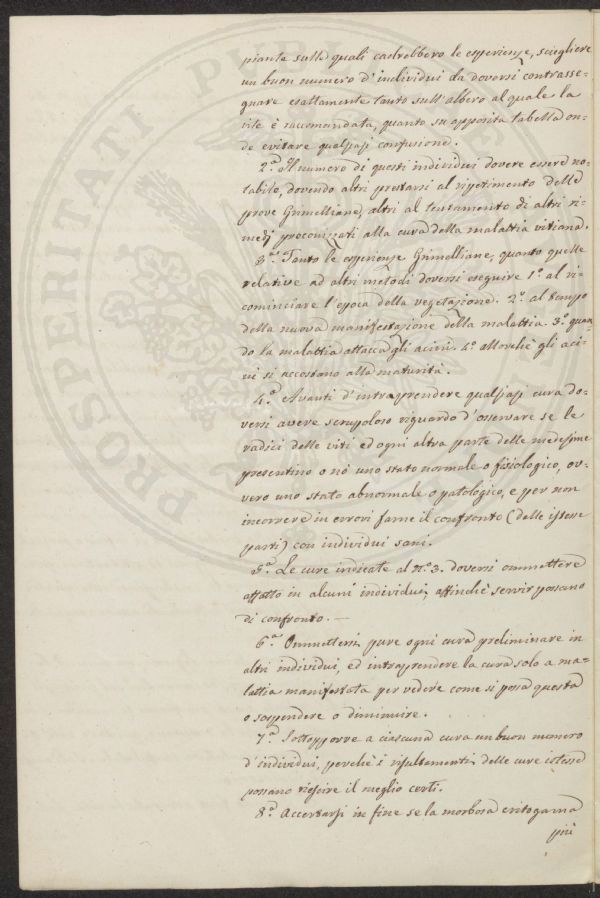 piante sulle quali cadrebbero le esperienze, scegliere
un buon numero d'individui da doversi contrasse=
gnare esattamente tanto sull'albero al quale la
vite è raccomandata, quanto su apposita tabella on=
de evitare qualsasi confusione.
2.a Il numero di questi individui dovere essere no=
tabile, dovendo altri prestarsi al ripetimento delle
prove Grimelliane, altri al tentamento di altri ri=
medj preconizzati alla cura della malattia vitiana.
3.a Tanto le esperienze Grimelliane, quanto quelle
relative ad altri metodi doversi eseguire 1.o al ri=
cominciare l'epoca della vegetazione. 2.o al tempo
della nuova manifestazione della malattia. 3.o quan=
do la malattia attacca gli acini. 4.o allorchè gli aci=
ni si accostano alla maturità.
4.a Avanti d'intraprendere qualsasi cura do=
versi avere scrupoloso riguardo d'osservare se le
radici delle viti ed ogni altra parte delle medesime
presentino o nò uno stato normale o fisiologico, ov=
vero uno stato abnormale o patologico, e per non
incorrere in errori farne il confronto (delle istesse
parti) con individui sani.
5.a Le cure indicate al N.o 3. doversi ommettere
affatto in alcuni individui, affinchè servir possano
di confronto. —
6.a Ommettersi pure ogni cura preliminare in
altri individui, ed intraprendere la cura solo a ma=
lattia manifestata per vedere come si possa questa
o sospendere o diminuire.
7.a Sottopporre a ciascuna cura un buon numero
d'individui, perchè i risultamenti delle cure istesse
possano riescire il meglio certi.
8.a Accertarsi in fine se la morbosa critogama
più
PROSPERITATI PUBLICAE